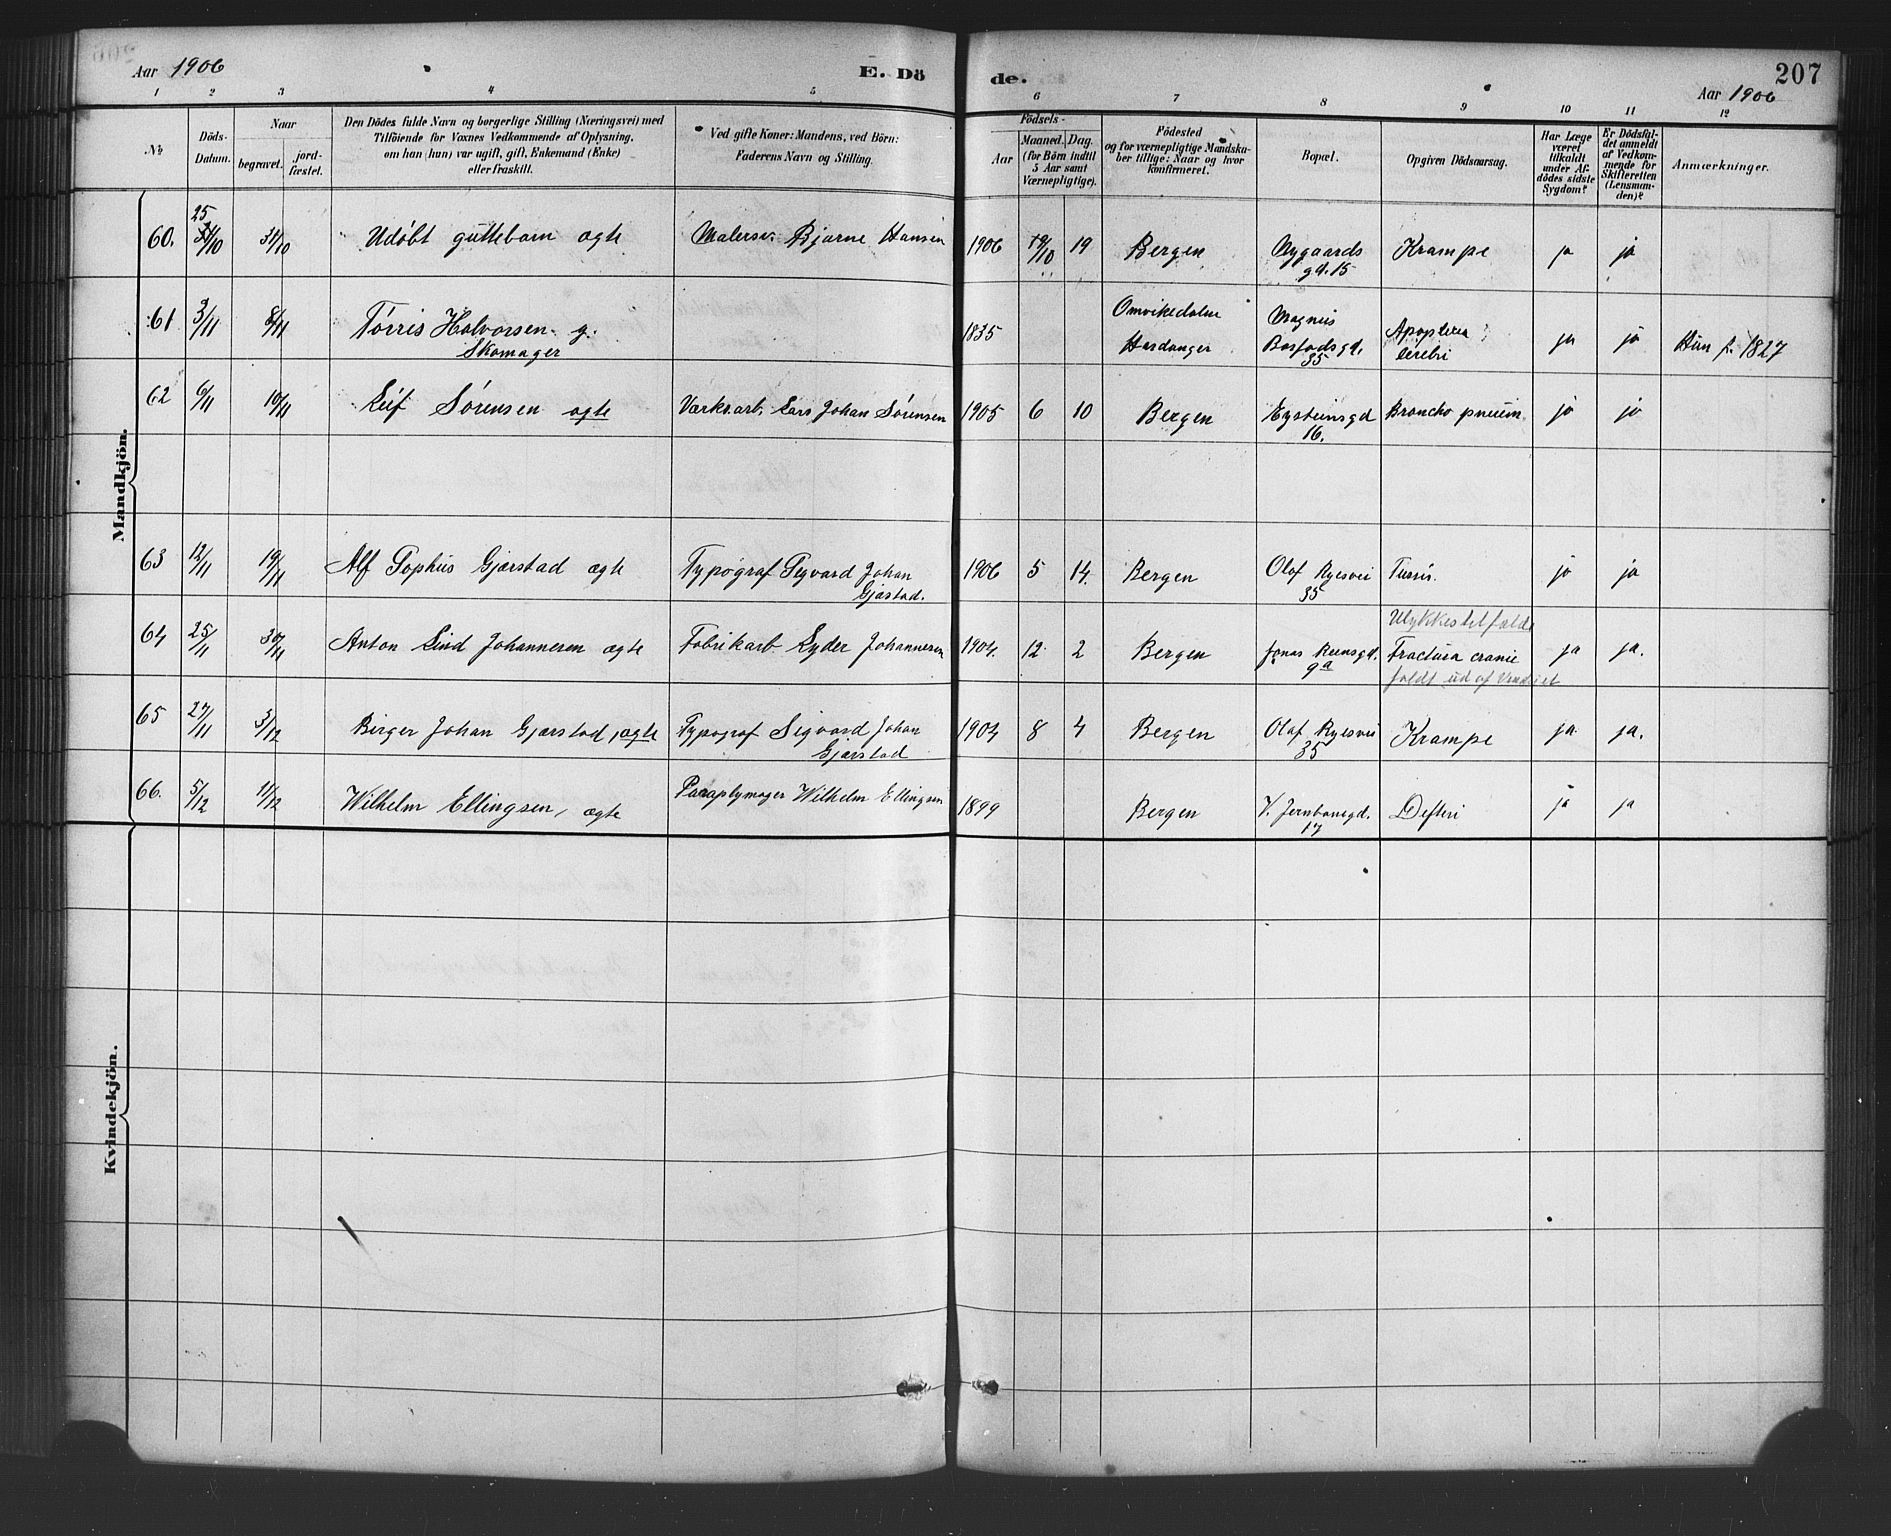 Aar 1906 E. Dö de. 207
Aar 1906
1 2 3 4 5 6 7 8 9 10 11 12
№ Döds-Datum. Naar begravet. jordfæstet.
Den Dödes fulde Navn og borgerlige Stilling (Næringsvei) med
Tilföiende for Voxnes Vedkommende af Oplysning,
om han (hun) var ugift, gift, Enkemand (Enke)
eller fraskilt.
Ved gifte Koner: Mandens, ved Börn:
Faderens Navn og Stilling.
Födsels-
Aar Maaned. Dag.
(for Börn indtil
5 Aar samt
Værnepligtige).
Födested
og for værnepligtige Mandska-
ber tillige: Naar og hvor
konfirmeret.
Bopæl.
Opgiven Dödsaarsag.
Har Læge
været
tilkaldt
under Af-
dödes sidste
Sygdom?
Er Dödsfal-
det anmeldt
af Vedkom-
mende for
Skifteretten
(Lensman-
den)?
Anmærkninger.
Mandkjön.
25
60. /10 31/10 Udøbt guttebarn ægte Malersv. Bjarne Hansen 1906 19/10 19 Bergen Nygaards Krampe ja ja
gd. 15
61 3/11 8/11 Tørris Halvorsen g. 1835 Omvikedalen Magnus Apoplexia ja ja Hun f. 1827
Skomager Hardanger Barfodsgd. cerebri
35
62 6/11 10/11 Leif Sørensen ægte Værksarb. Lars Johan Sørensen 1905 6 10 Bergen Eysteinsgd Broncho pneum. ja ja
16.
63 12/11 19/11 Alf Sophus Gjærstad ægte Typograf Sigvard Johan 1906 5 14. Bergen Olaf Ryesvei Tussis. ja ja
Gjæstad. 35
Ulykkestilfælde
64 25/11 30/11 Anton Lind Johannesen ægte Fabrikarb. Lyder Johannesen 1904. 12 2 Bergen Jonas Reinsgd. Fractura cranie ja ja.
9a faldt ud af Vinduet
65 27/11 3/12 Birger Johan Gjærstad, ægte Typograf Sigvard Johan 1904 8 4 Bergen Olaf Ryesvei Krampe ja. ja.
Gjærstad 35
66. 5/12 11/12 Wilhelm Ellingsen, ægte Paraplymager Wilhelm Ellingsen 1899 Bergen V. Jernbanegd. Difteri ja ja
17
Kvindekjön.